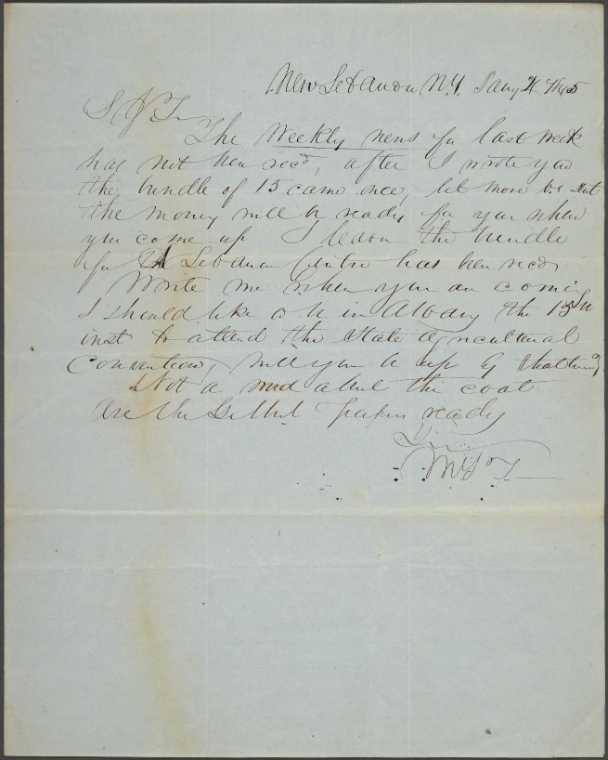 New Lebanon N.Y. Jany
S J T
The Weekly news for last week
has not been recd, after I wrote you
the bundle of 15 came once, let more be sent
the money will be ready for you when
you come up I learn the bundle
for Lebanon Centre has been recd
Write me when you are coming
I should like to be in Albany the 15th
inst to attend the State Agricultural
Convention, will you be up by
Not a word about the coat
Are the papers ready